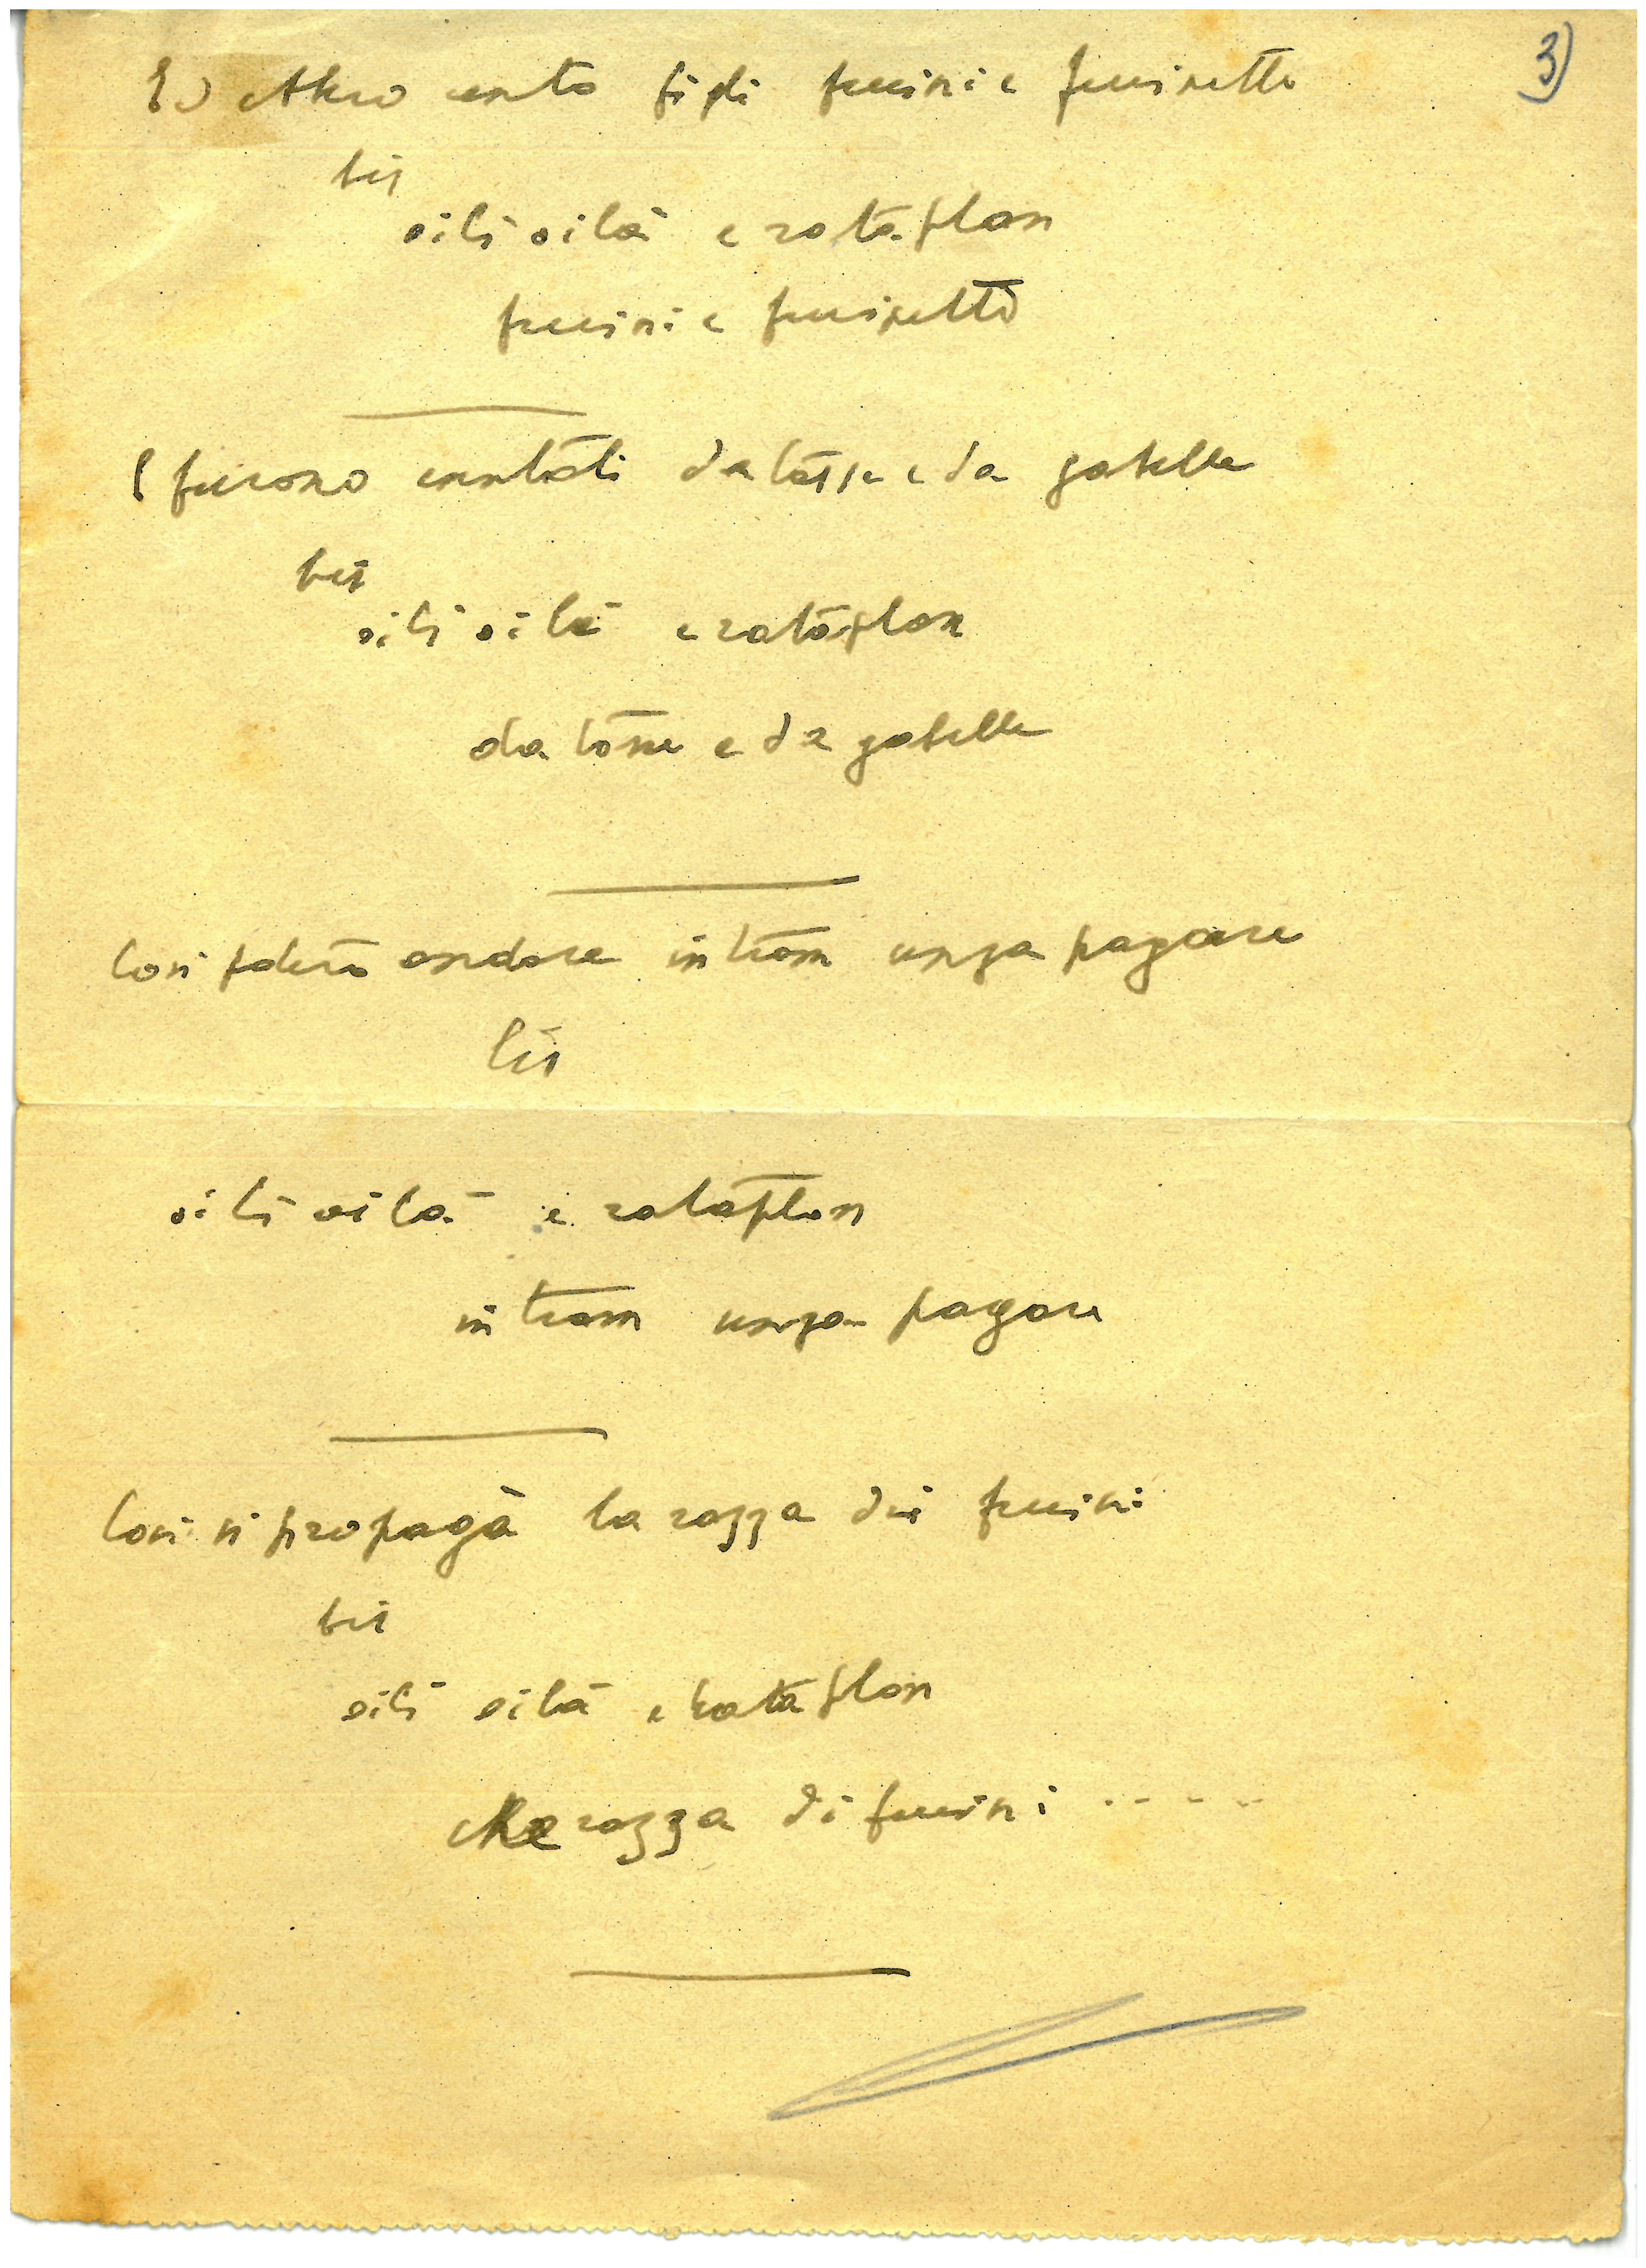 3)
Ed ebbero cento figli fucini e fucinetti
bis
oilì oilà e rataflan
fucini e fucinetti
E furono esentati da tasse e da gabelle
bis
oilì oilà e rataflan
da tasse e da gabelle
Così poterò andare in tram senza pagare
bis
oilì oilà e rataplan
in tram senza pagare
Così si propagà la razza dei fucini
bis
oilì oilà e rataflan
che razza di fucini .....